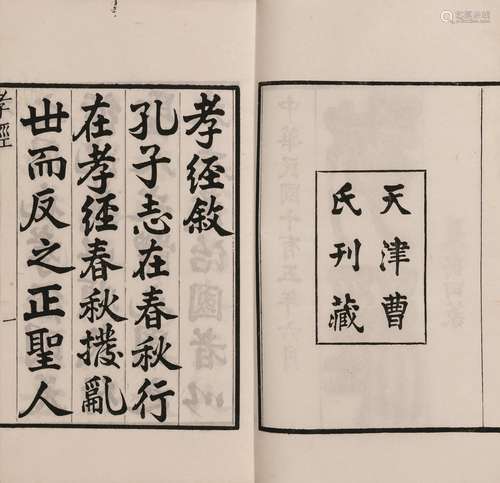 天津曹
氏刊藏
孝經敘
孔子志在春秋行
在孝經春秋撥亂
丗而反之正聖人
孝經
一